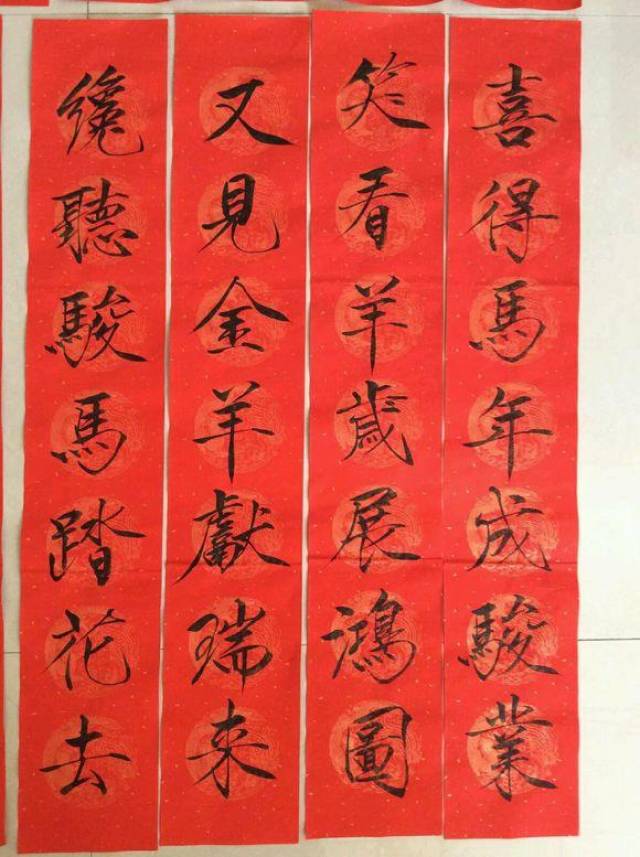 喜得馬年成駿業
笑看羊歲展鴻圖
又見金羊獻瑞來
纔聽駿馬踏花去